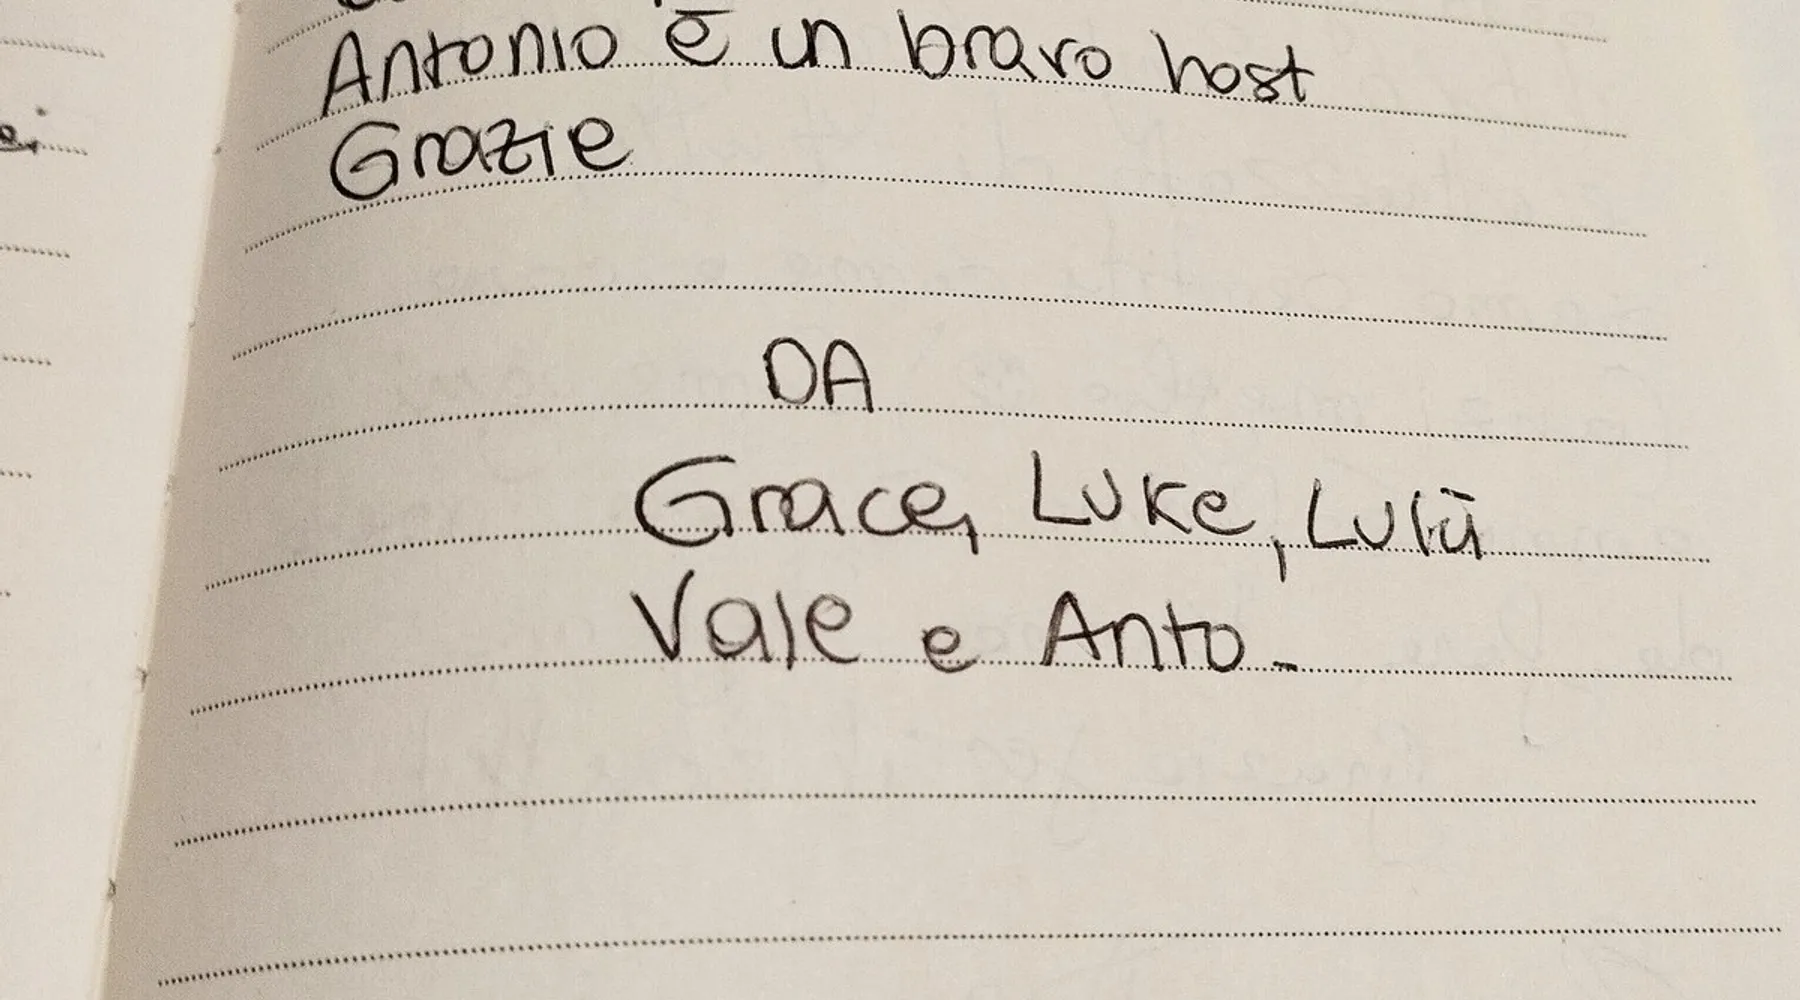 Antonio è un bravo host
Grazie
DA
Grace, Luke, Lulù
Vale e Anto -